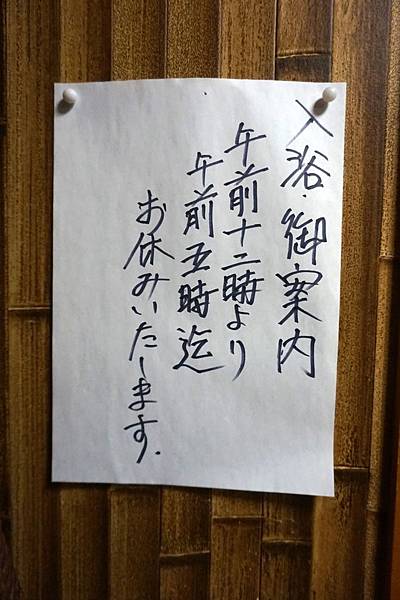 入浴・御案内
午前十二時より
午前五時迄
お休みいたします.